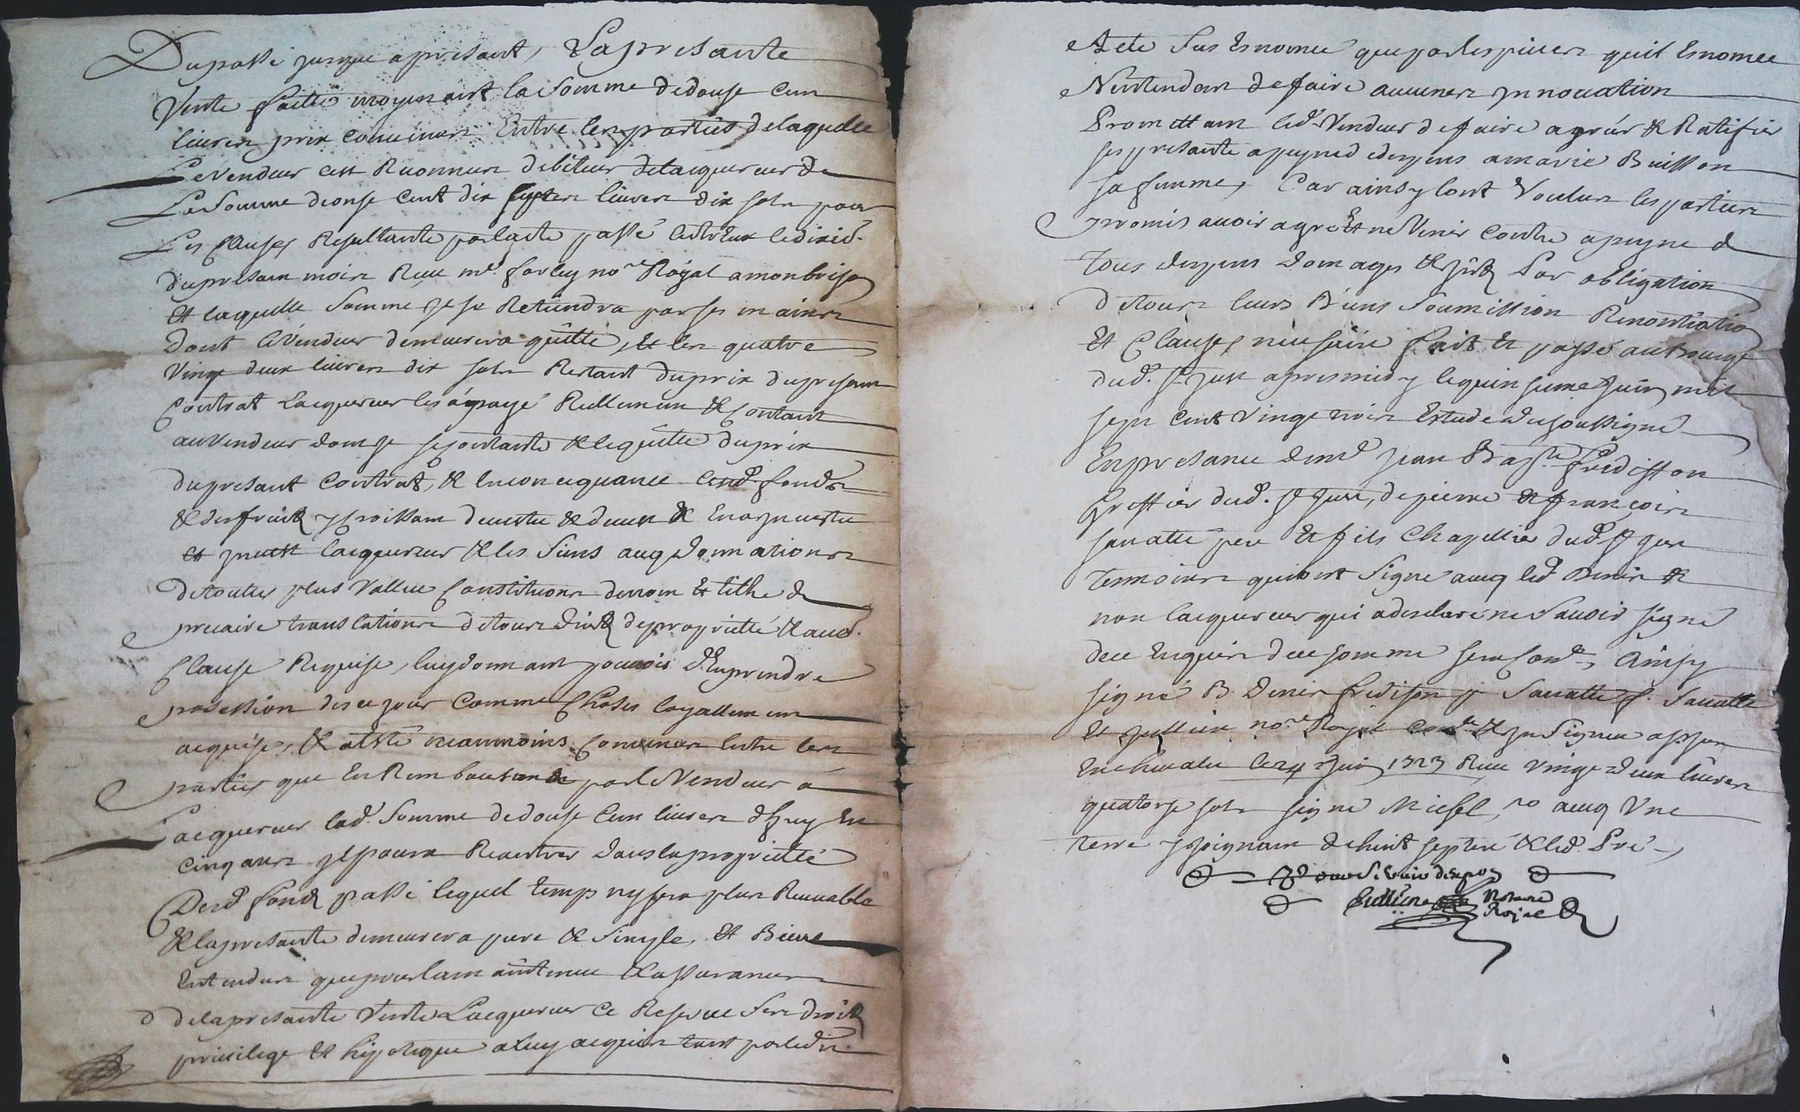 Dupassé jusque apresant, Lapresante
Vente faitte moyenant la somme dedouse cent
livres prix convenus Entre les parties delaquelle
Levendeur est Reconnus debiteur delacquereur de
La Somme dionse cent dix sept livres dix sols pour
Les Causes Resultante parlacte passé
dupresant mois Receu me. forley nore. Royal amonbrison
Et laquelle Somme je se Retiendra parses mains
dont levendeur demeurera quitte, et les quatre
Vingt deux livres dix sols Restant duprix dupresant
Contrat Lacquereur les apayé Reellement & Contant
auvendeur dont je secontante & lequitte duprix
dupresant Contrat, & enconcequance fonds
& desfruits ycroissant devestu & devest & Enaynvestu
et ynvest lacquereur & les Siens avec donnations
detoutes plus Vallue Constitutions denom & tiltre de
precaire translations detous droits depropriette &aud.
Clause Requise, luydonnant pouvoir d'Enprendre
possession desce jour comme Choses loyallement
acquise, & aesté neanmoins Convenus Entre les
parties que EnRemboursant parle Vendeur a
Lacquereur lad. Somme dedouse Cent livres d'huy En
cinq ans jl poura Reentrer danslapropriette
Desd. fonds passé lequel temp nysera plus Recevable
& lapresante demeurera pure & Simple, et Bien
Entendus quepourlamaintenue &assurance
delapresante Vente Lacquereur ce Reserve Ses droits
privilege et hipoteque aluy acquis tant parledit
Acte Sus Enomé queparlespieces quil Enomee
Nentendant defaire aucunes ynnovation
Promettant led. Vendeur defaire agréer & Ratifier
ses presante apeyne dedepens amarie Buisson
sa femme, Car ainsy lont Voulus les parties
promis avoir agré et ne Venir contre apeyne de
tous depens domages & Par obligation
detous leurs Biens Soumission Renontiation
Et Clauses necessaire fait et passé aubourg
dud. St Just apresmidy lequinsieme Juin mil
sept cent Vingt trois Estude dusoussigné
Enpresance demr. Jean Bapte. fredisson
Greffier dud. St Just, depierre & francois
savatte pere et fils Chapellier dud. St Just
temoins quiont Signé avec led. Denis &
non lacquereur qui adeclaré ne Savoir signé
dece Enquis decesommé , Ainsy
signé B Denis fredisson p Savatte f. Savatte
Et Jullien nore Royal &
le 24 Juin 1723 Receu Vingt deux livres
quatorse sols signé Michel, avec Une
terre jpoignant & led. Pré
Jullien Notaire
Royal